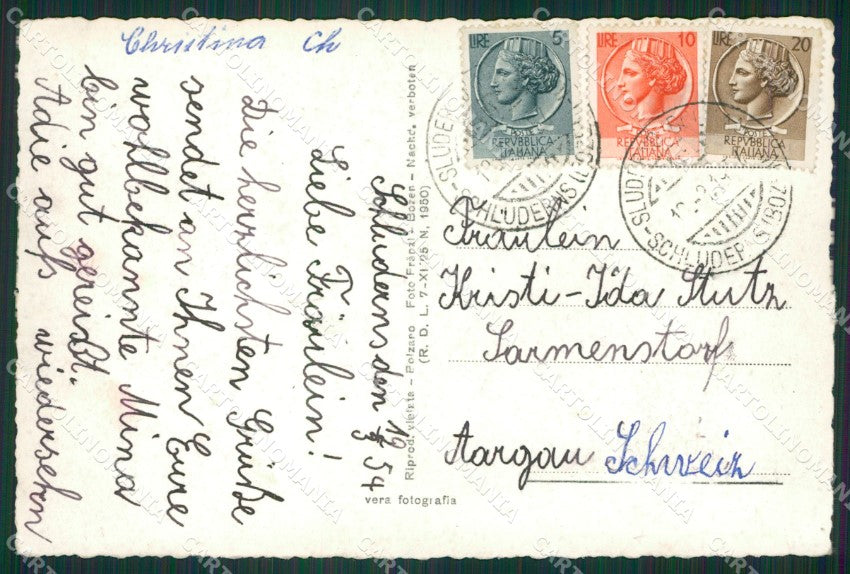 Christina Ch
Schluderns den 19/8 54
Liebe Fräulein!
Die herzlichsten Grüße
sendet an Ihnen Eure
wohlbekannte Mina
bin gut gereist.
Adie aufs wiedersehn
Riprod. vietata - Bolzano Foto Fränzl - Bozen - Nachd. verboten
(R. D. L. 7-XI-25 N. 1950)
vera fotografia
LIRE 5
REPVBBLICA
ITALIANA
LIRE 10
REPVBBLICA
ITALIANA
LIRE 20
REPVBBLICA
ITALIANA
SLUDERNO-SCHLUDERNS (BOLZ
SLUDERNO-SCHLUDERNS (BOLZ
Fräulein
Kristi-Ida Stutz
Sarmenstorf
Aargau Schweiz
CARTOLINOMANIA